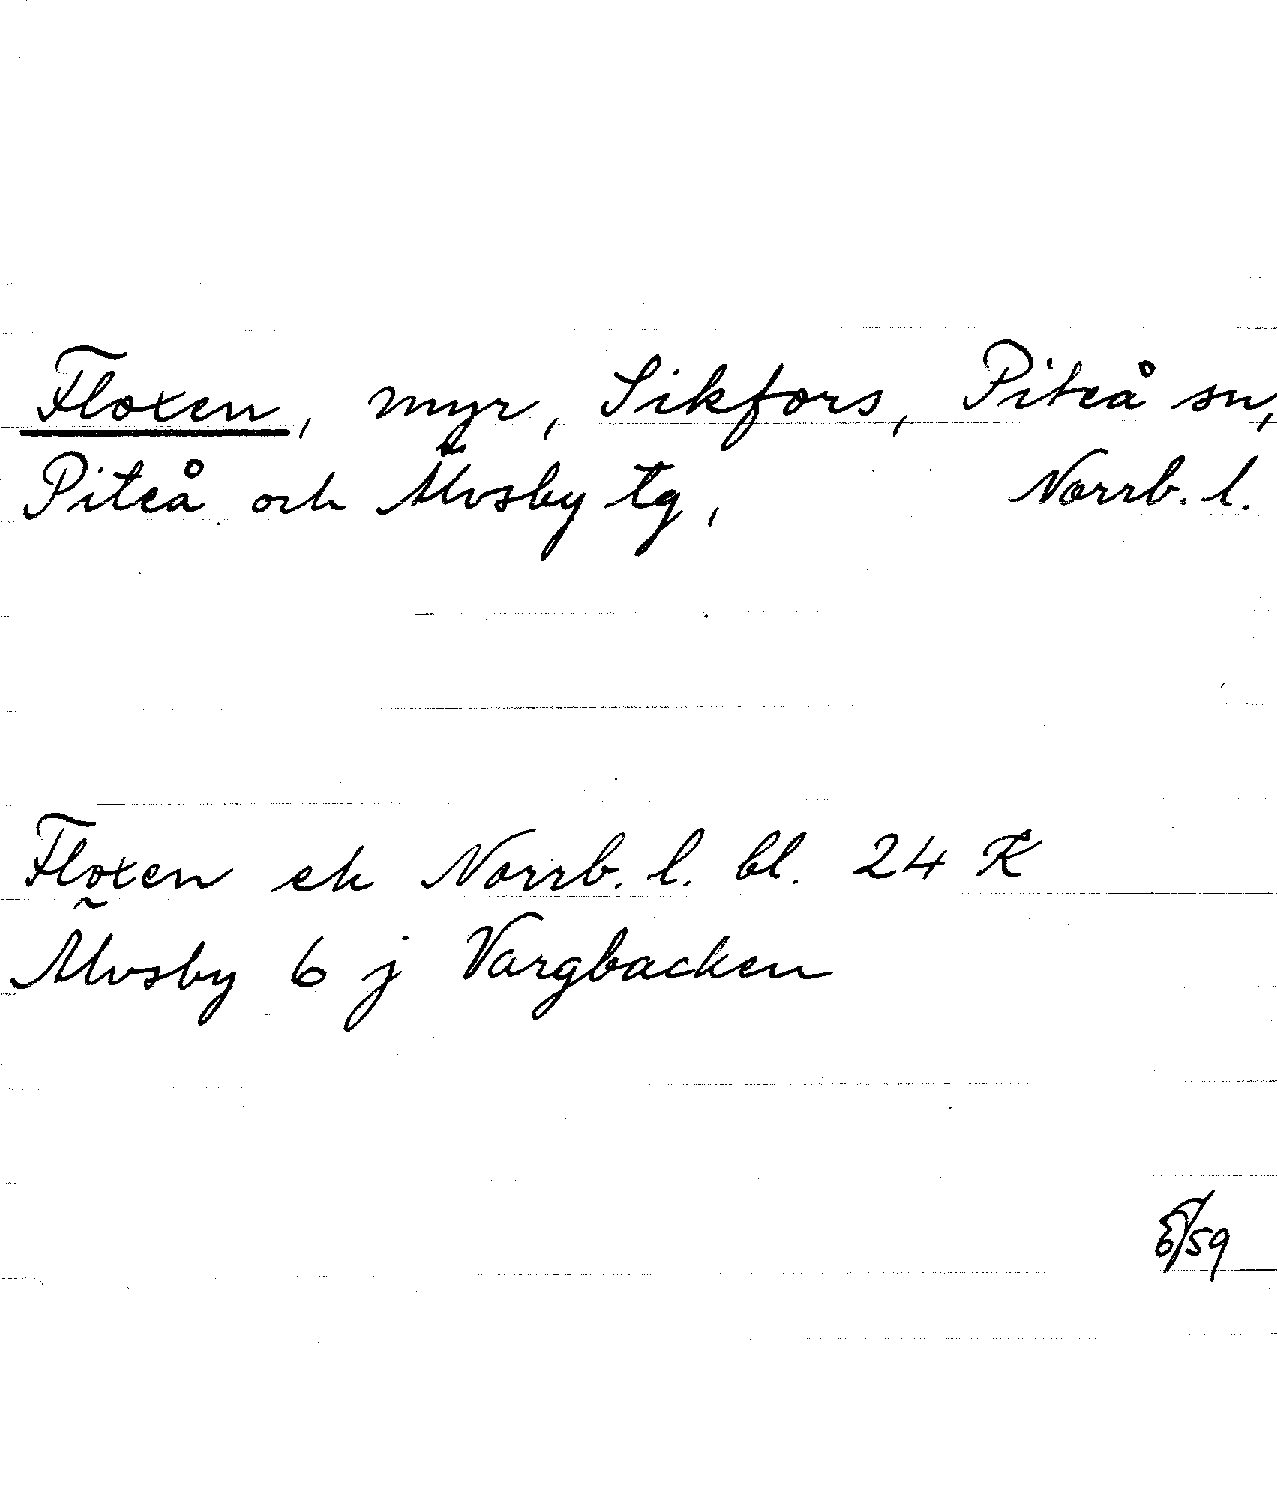 Floxen, myr, Sikfors, Piteå sn,
Piteå och Älvsby tg, Norrb. l.
Floxen ek Norrb. l. bl. 24 K
Älvsby 6 j Vargbacken
/59